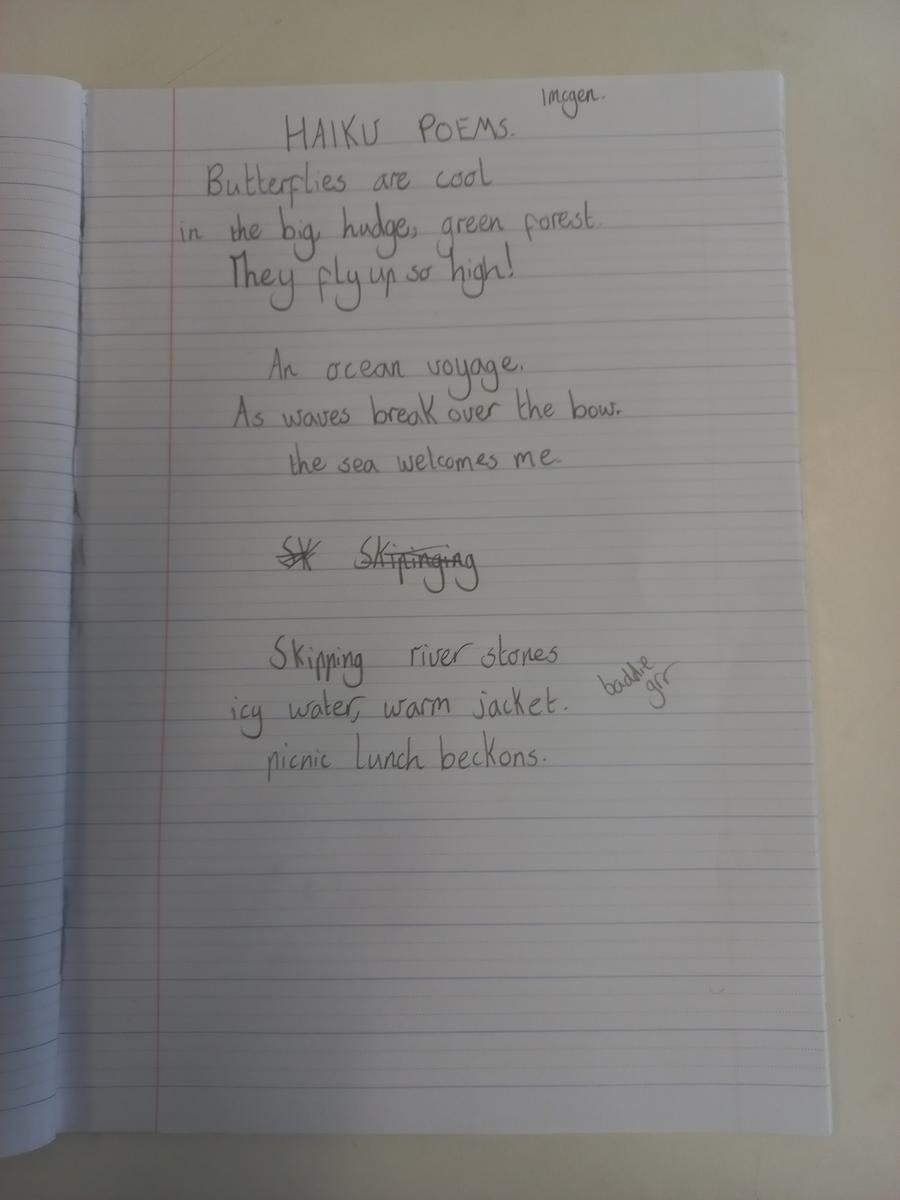 Imogen.
HAIKU POEMS.
Butterflies are cool
in the big, hudge, green forest.
They fly up so high!
An ocean voyage.
As waves break over the bow.
the sea welcomes me.
SK Skipinging
Skipping river stones
icy water, warm jacket.
picnic lunch beckons.
baddie
grr